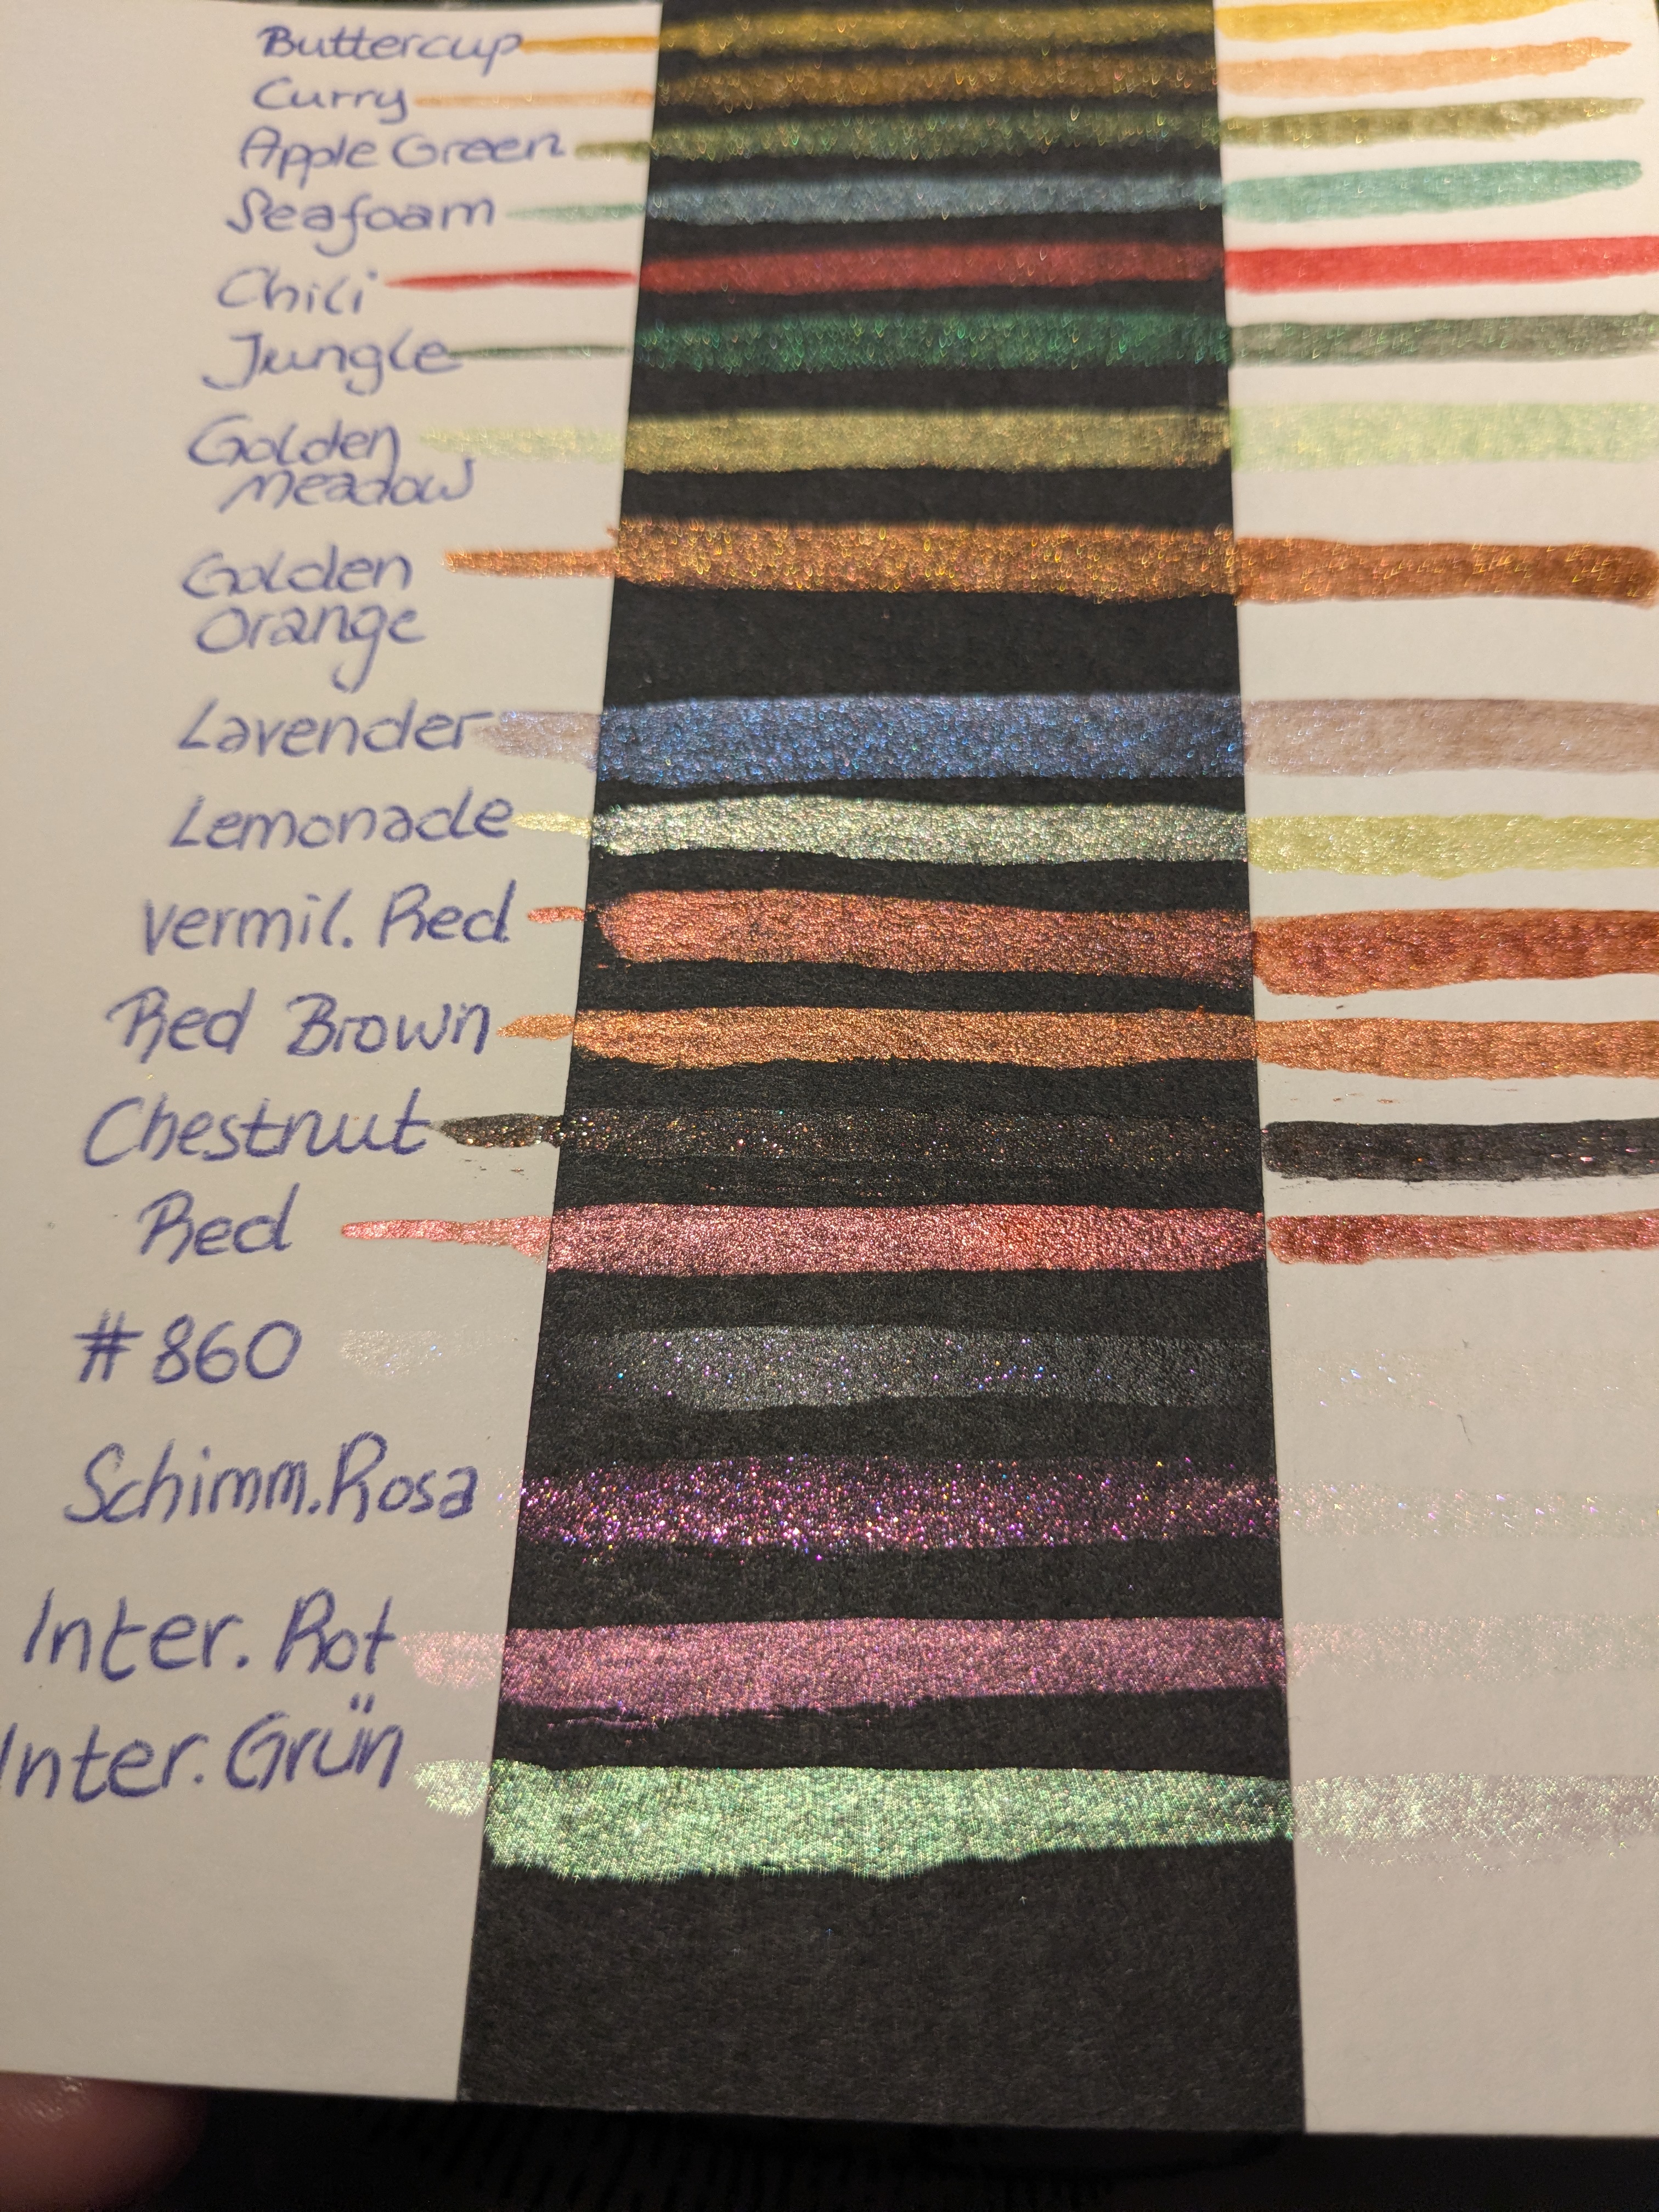 Buttercup
Curry
Apple Green
Seafoam
Chili
Jungle
Golden
Meadow
Golden
Orange
Lavender
Lemonade
Vermil. Red
Red Brown
Chestnut
Red
#860
Schimm. Rosa
Inter. Rot
Inter. Grün